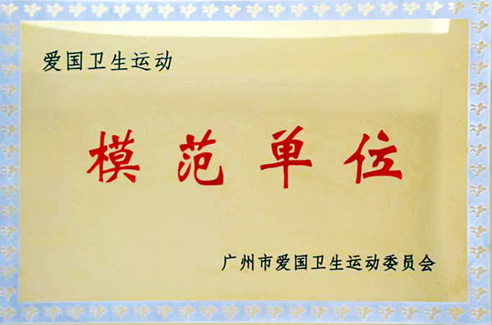 爱国卫生运动
模范单位
广州市爱国卫生运动委员会